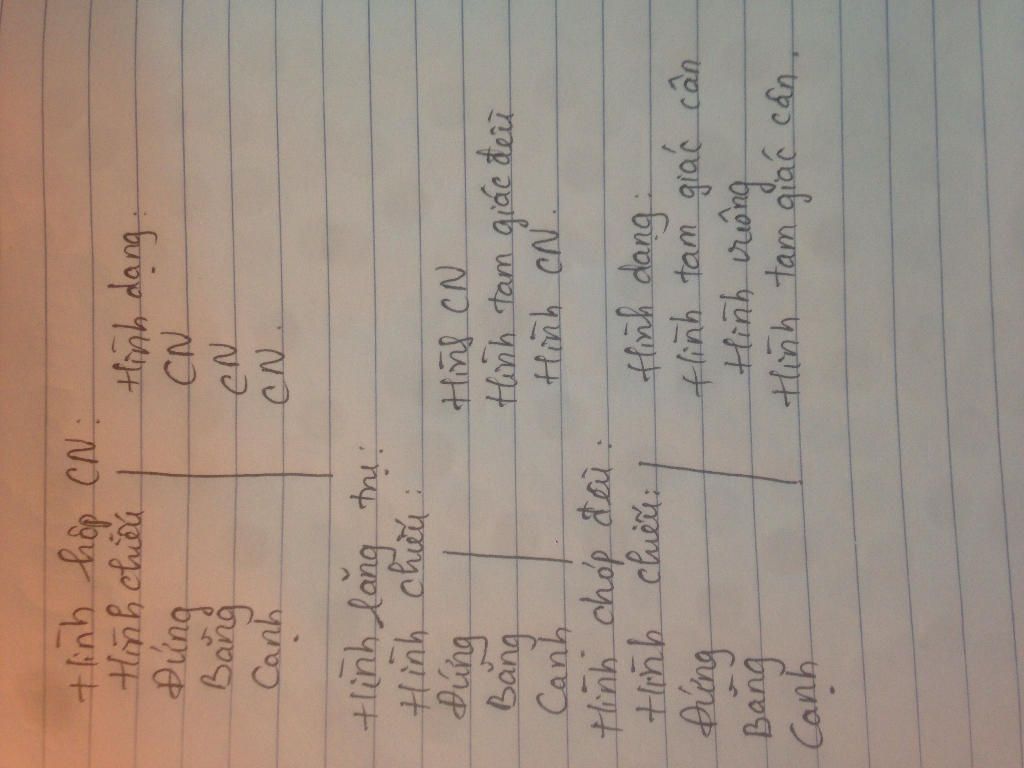 Hình hộp CN:
Hình chiếu Hình dạng:
Đứng CN
Bằng CN
Cạnh CN.
Hình lăng trụ:
Hình chiếu:
Đứng Hình CN
Bằng Hình tam giác đều
Cạnh Hình CN.
Hình chóp đều:
Hình chiếu: Hình dạng:
Đứng Hình tam giác cân
Bằng Hình vuông
Cạnh Hình tam giác cân.